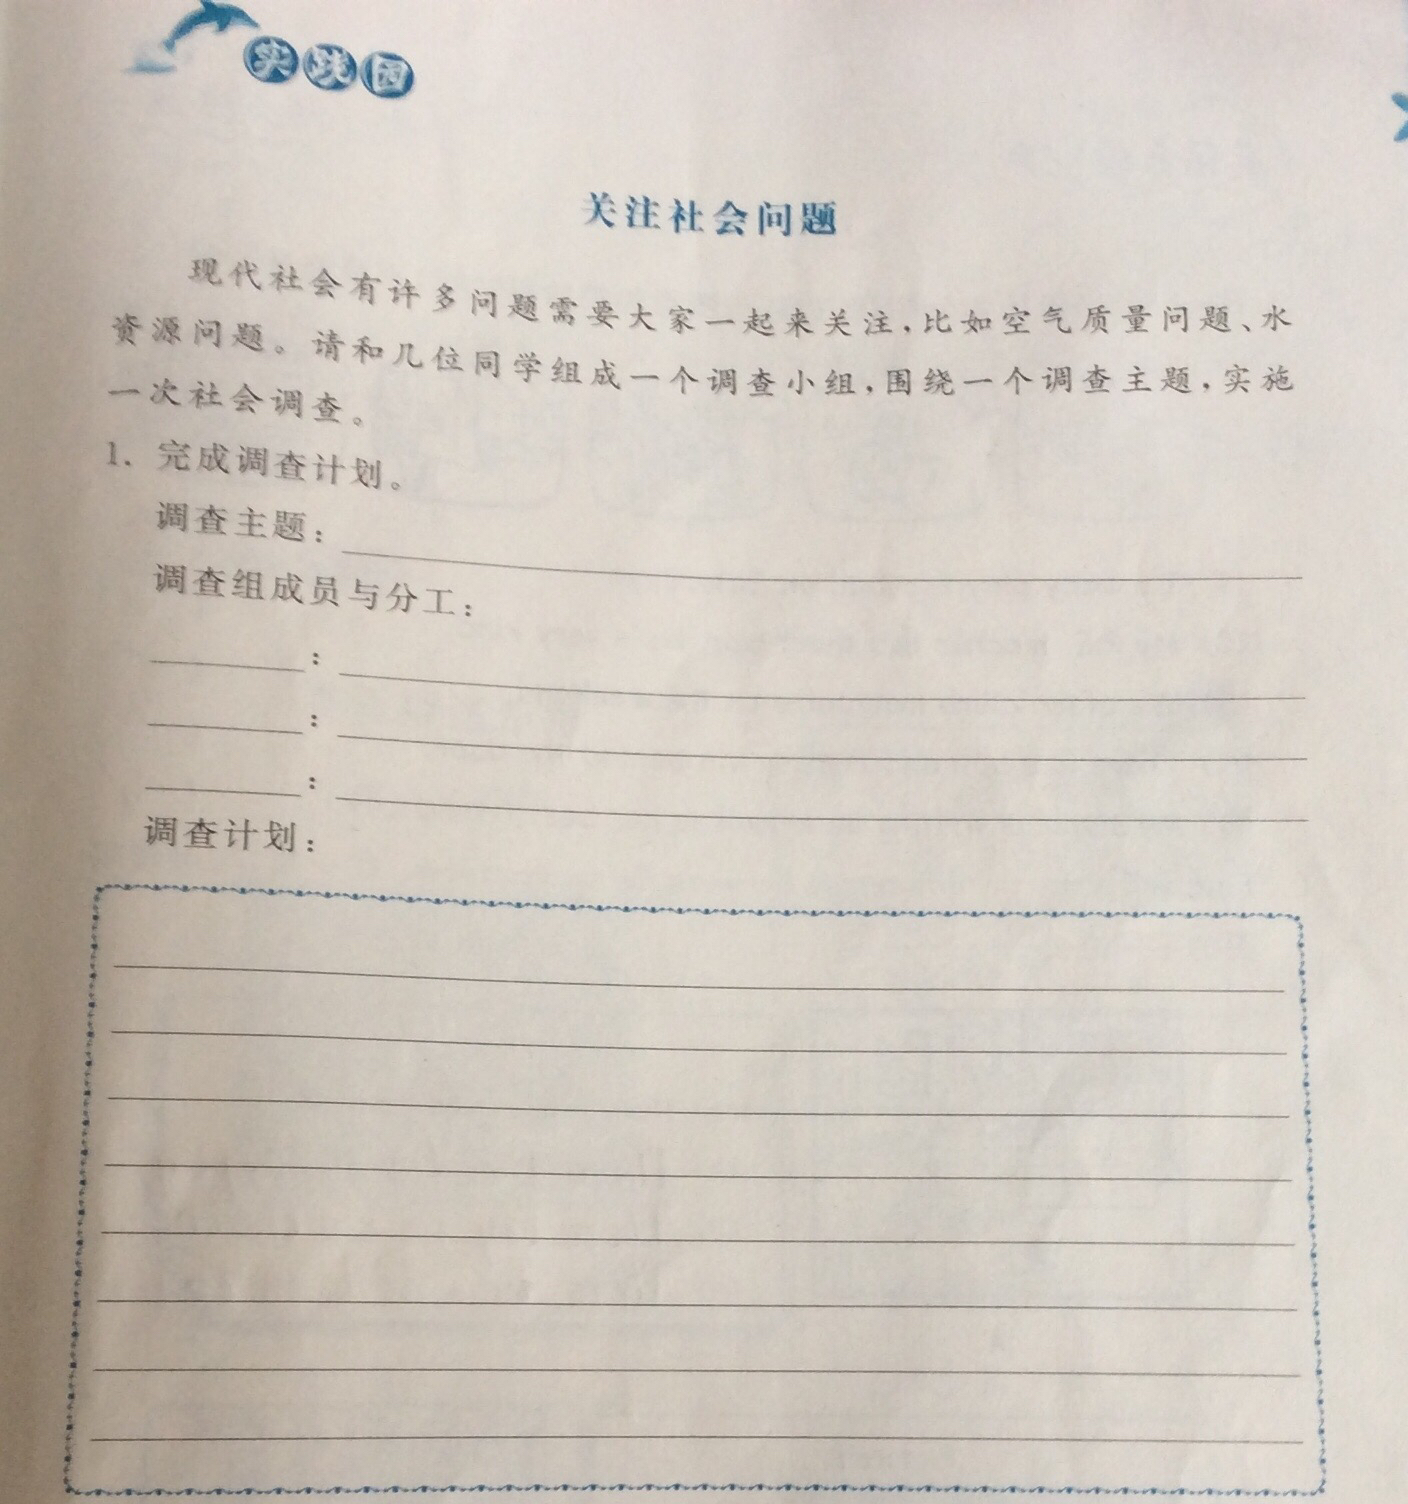 实践园
关注社会问题
现代社会有许多问题需要大家一起来关注,比如空气质量问题、水
资源问题。请和几位同学组成一个调查小组,围绕一个调查主题,实施
一次社会调查。
1. 完成调查计划。
调查主题:
调查组成员与分工:
:
:
:
调查计划: